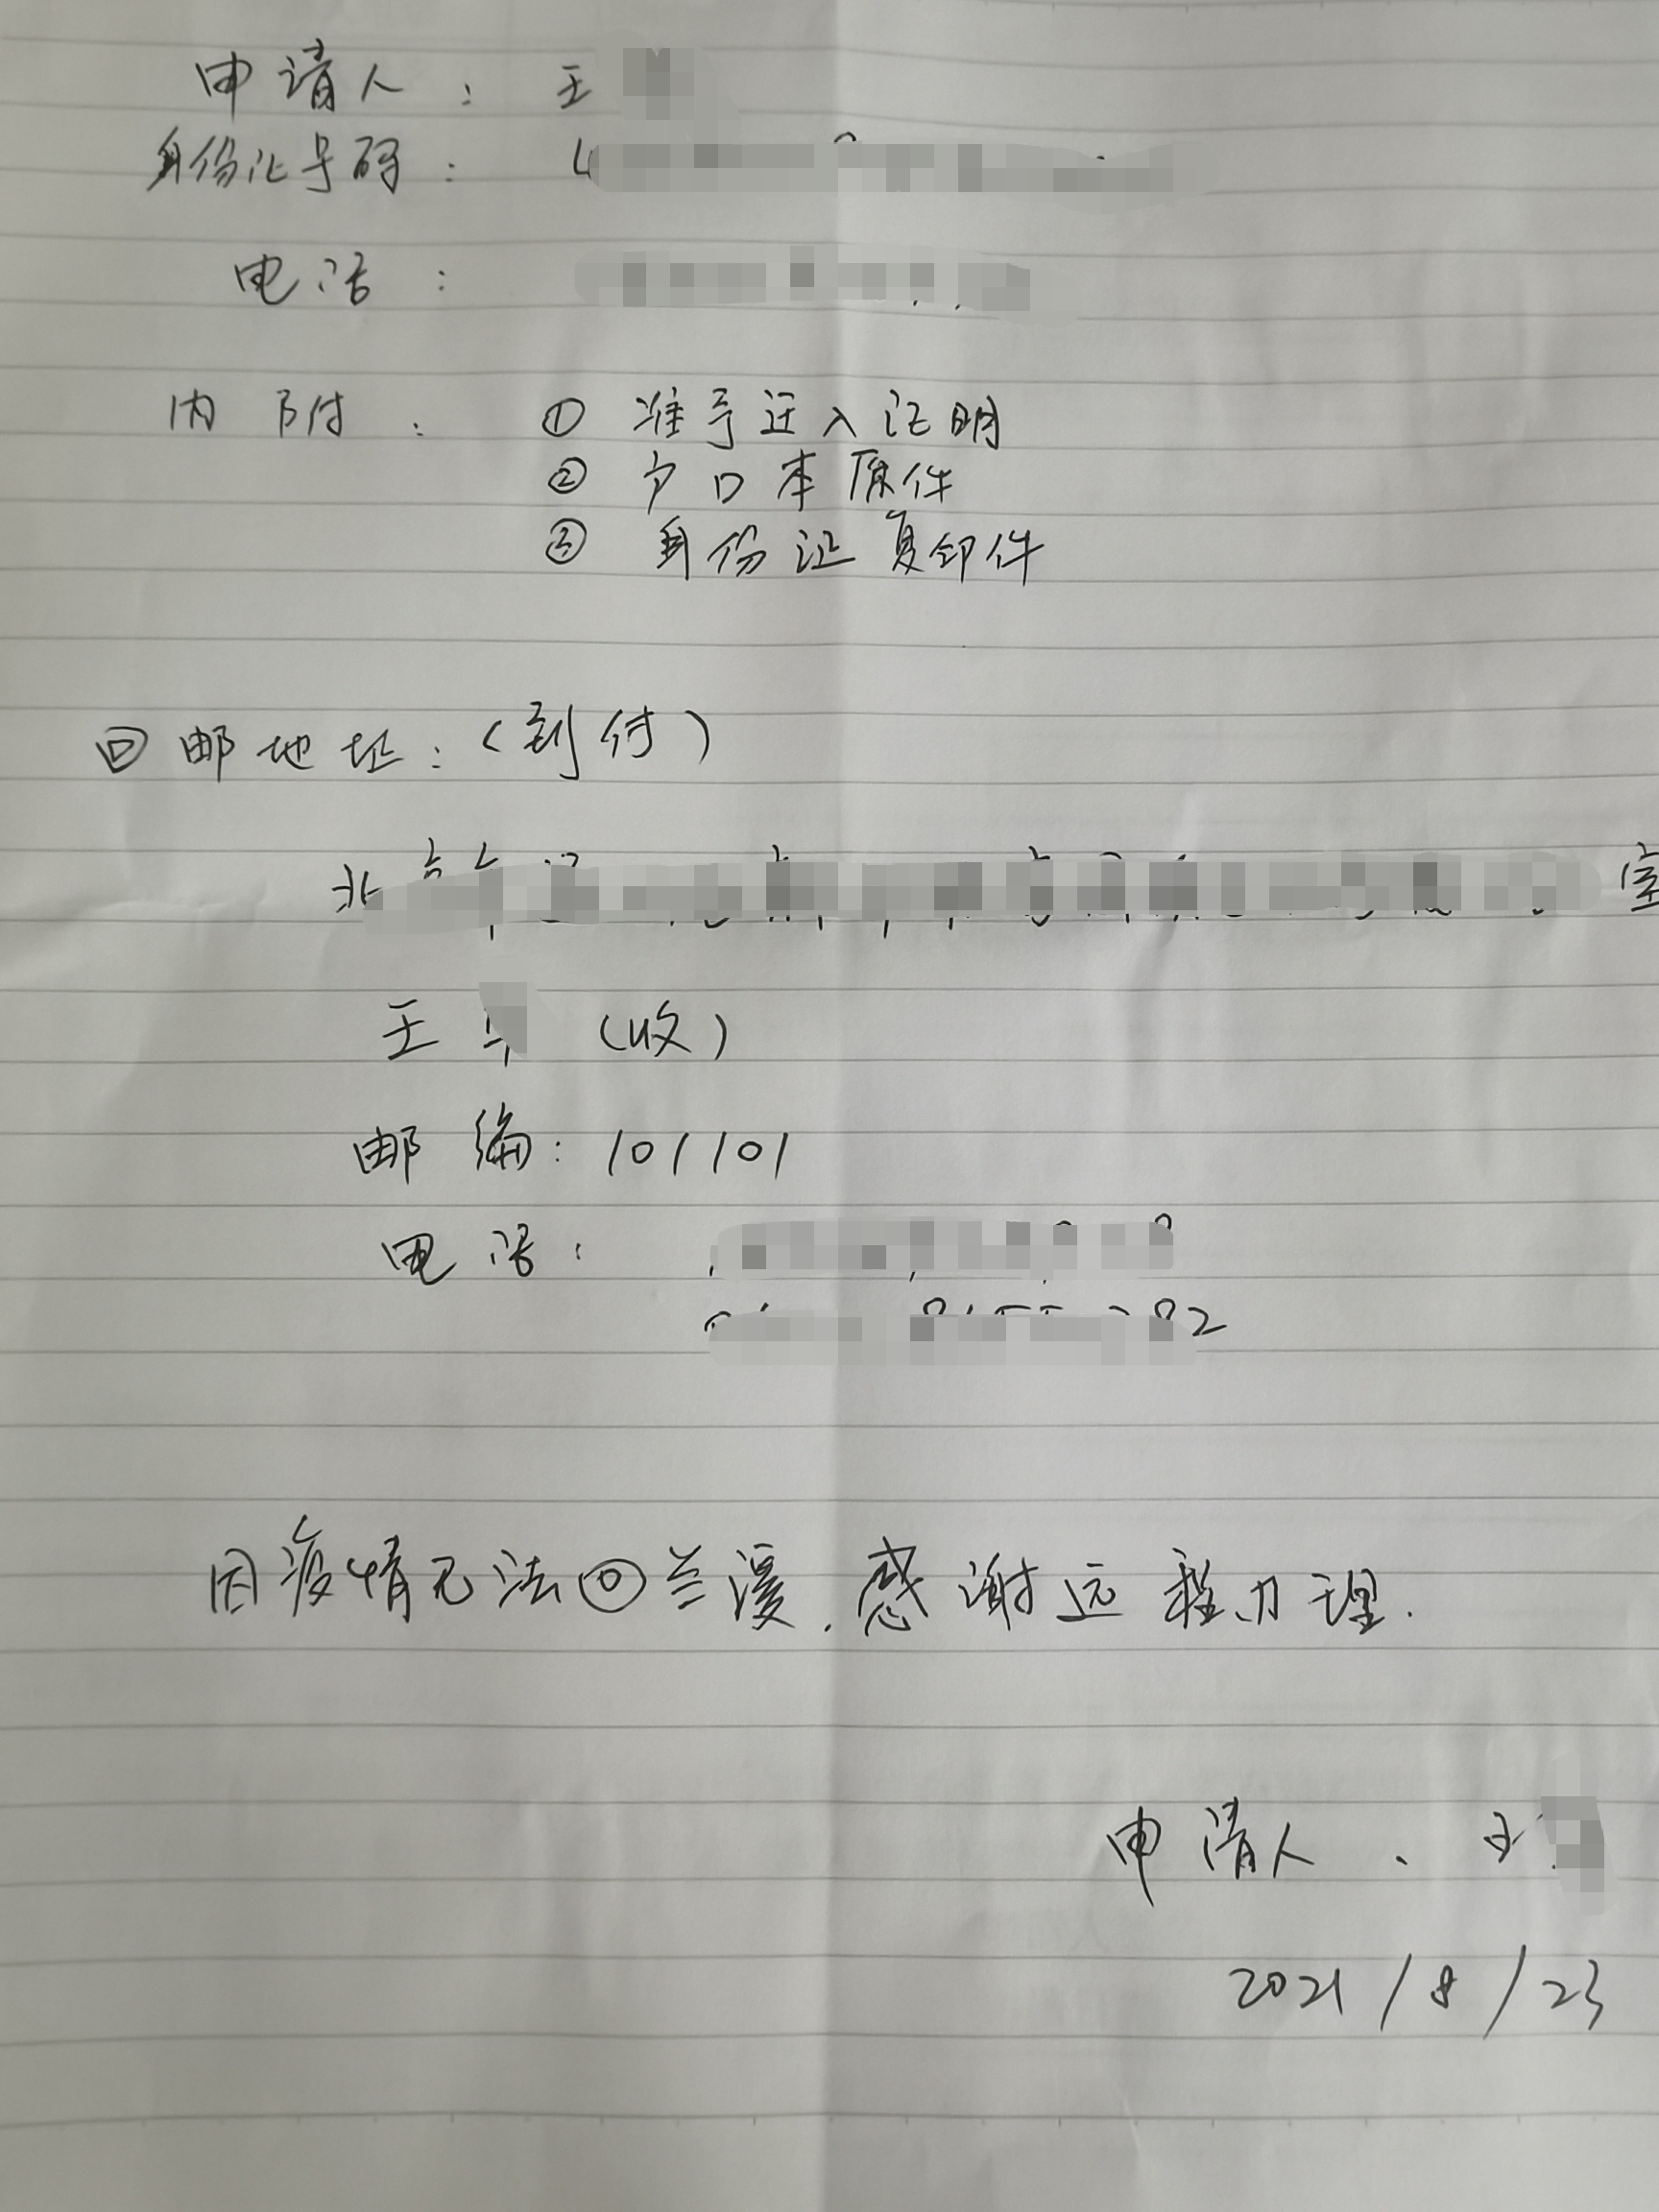 申请人：王
身份证号码：
电话：
内附：① 准予迁入证明
② 户口本原件
③ 身份证复印件
回邮地址：（到付）
北 室
王 （收）
邮编：101101
电话：
82
因疫情无法回兰溪，感谢远程办理.
申请人、王
2021/8/23